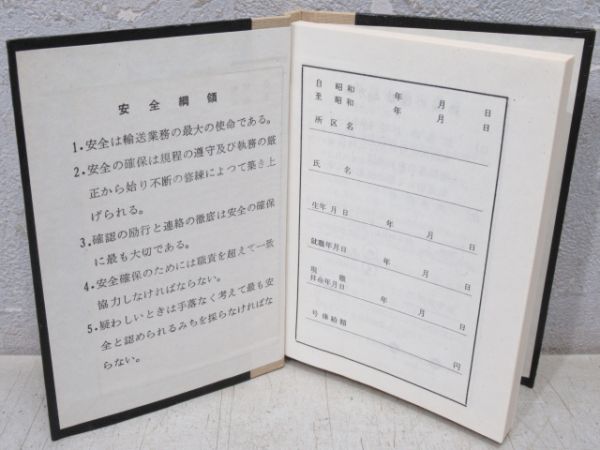 安全綱領
1・安全は輸送業務の最大の使命である。
2・安全の確保は規程の遵守及び執務の厳
正から始り不断の修練によつて築き上
げられる。
3・確認の励行と連絡の徹底は安全の確保
に最も大切である。
4・安全確保のためには職責を超えて一致
協力しなければならない。
5・疑わしいときは手落なく考えて最も安
全と認められるみちを採らなければな
らない。
自 昭和 年 月 日
至 昭和 年 月 日
所区名
氏名
生年月日 年 月 日
就職年月日 年 月 日
現職
拝命年月日 年 月 日
年 月 日
号俸給額 円